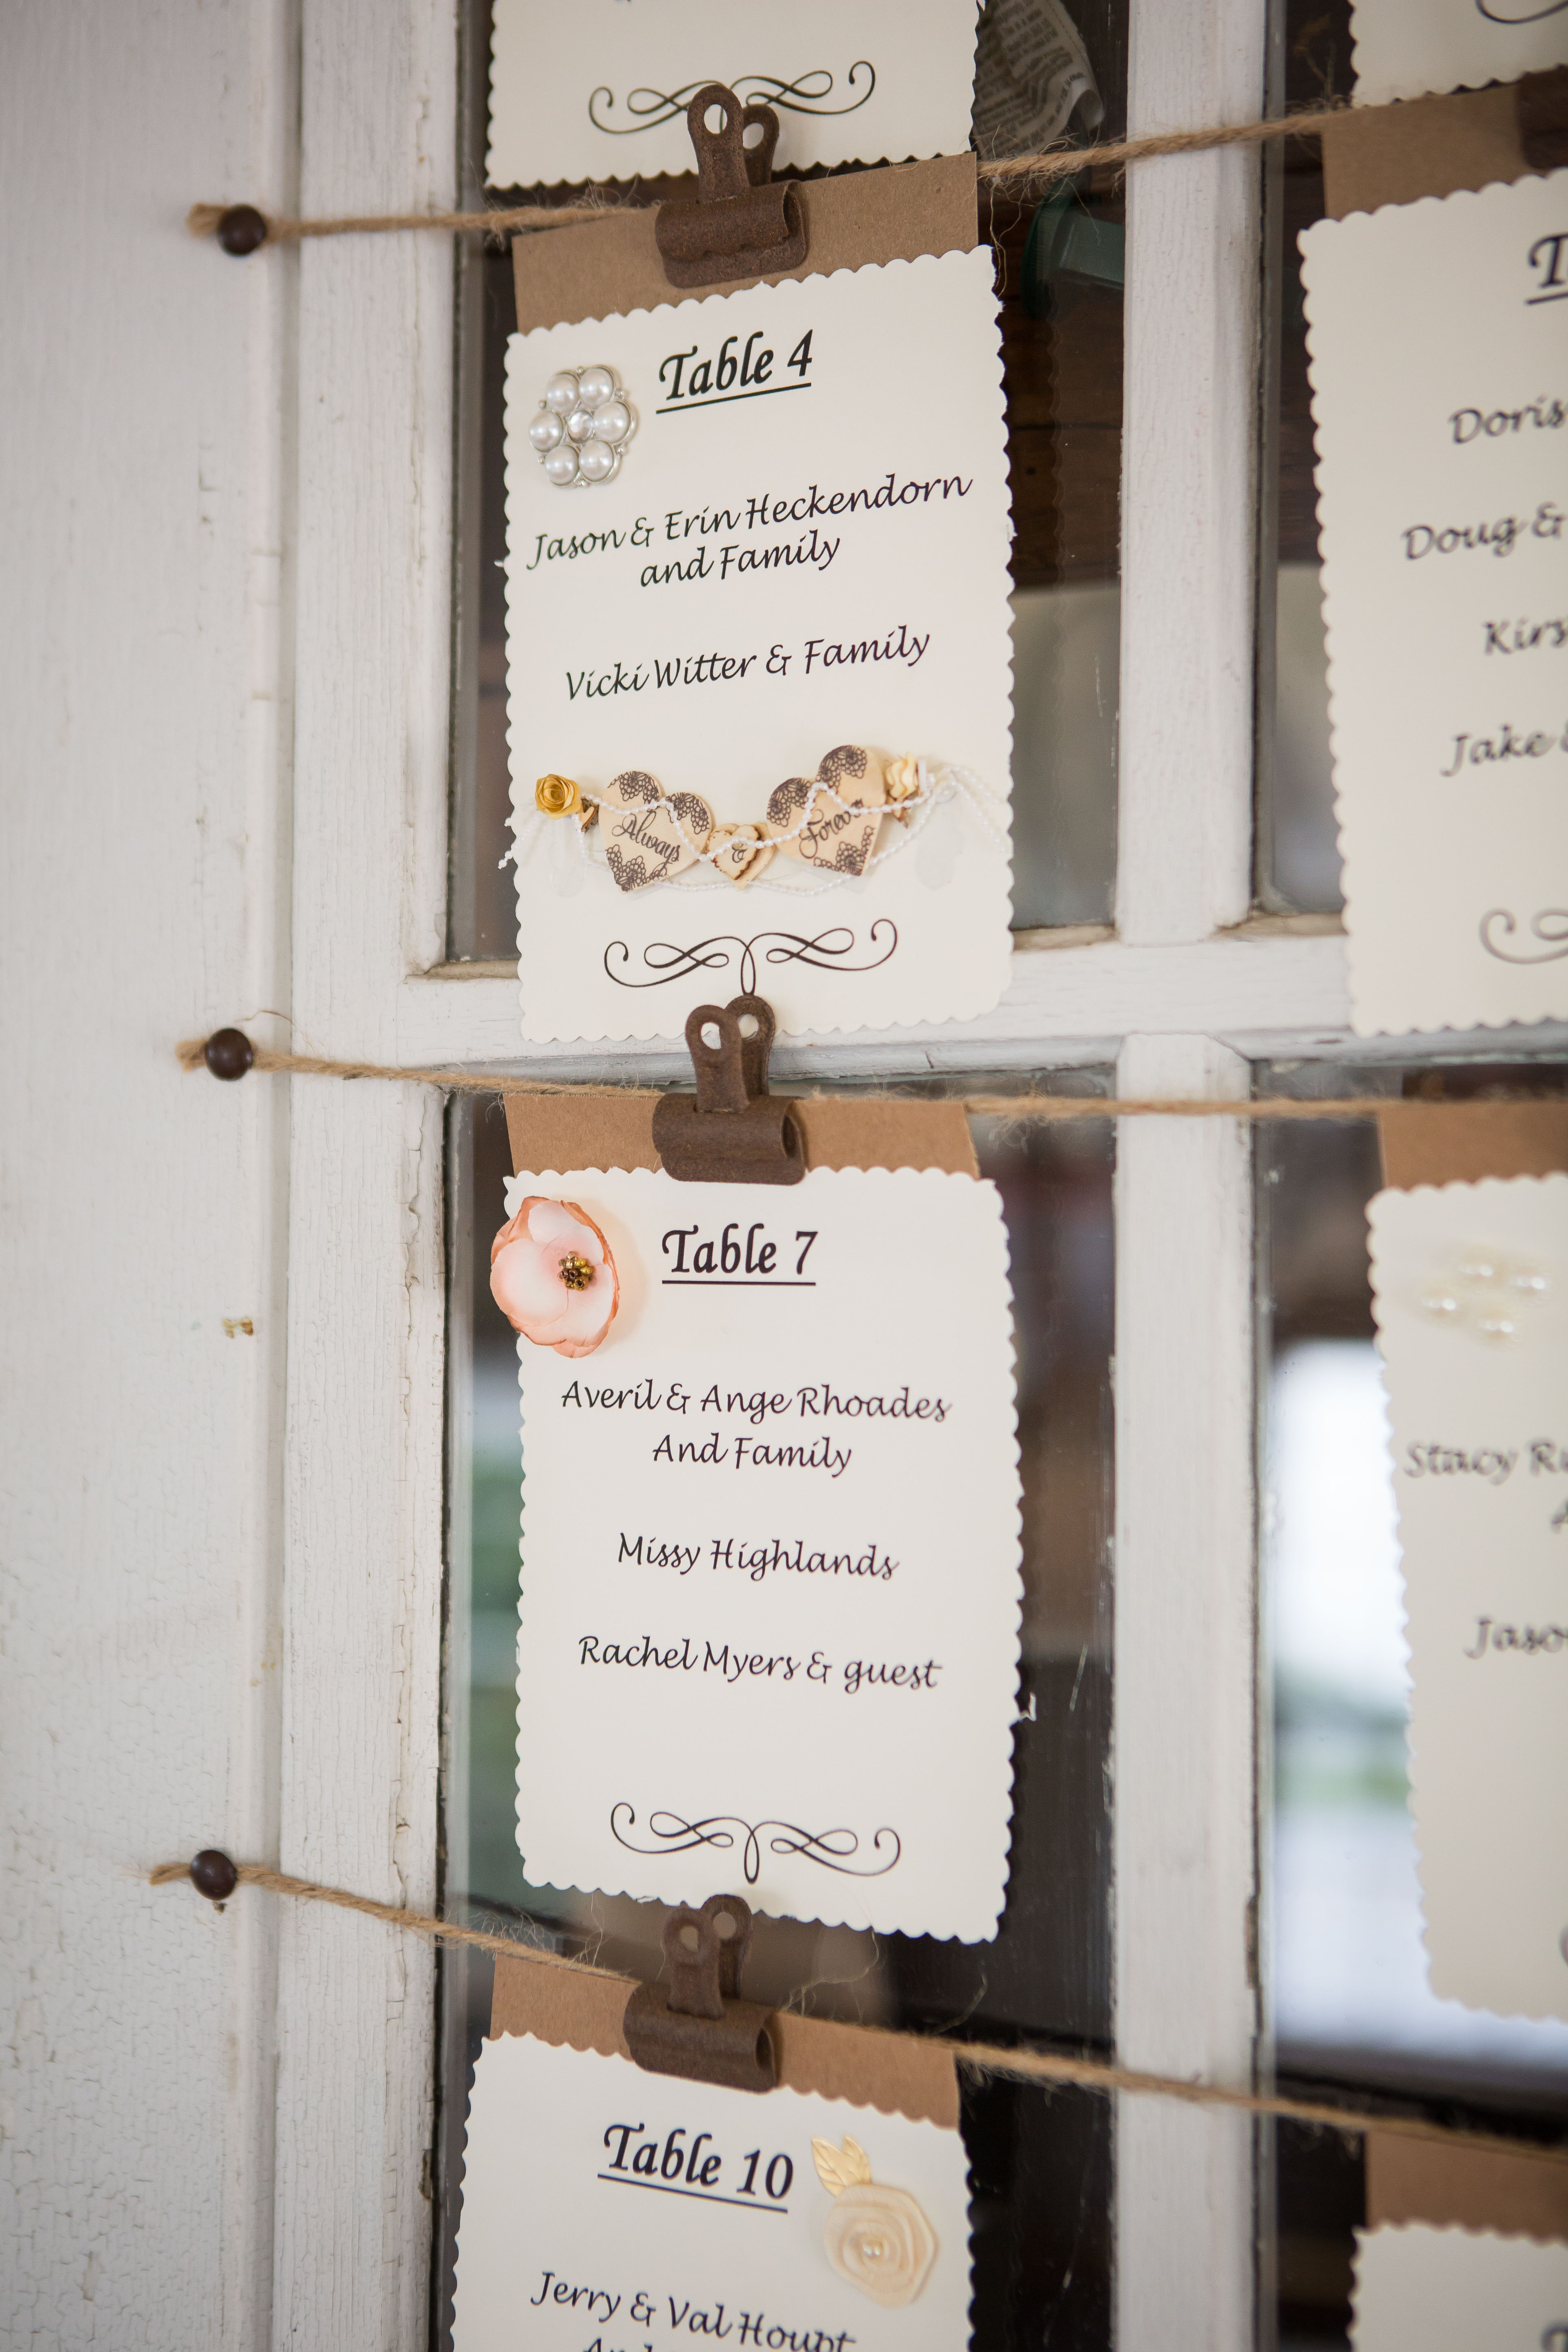 Table 4
Jason & Erin Heckendorn
and Family
Vicki Witter & Family
Always
&
Forever
Table 7
Averil & Ange Rhoades
And Family
Missy Highlands
Rachel Myers & guest
Table 10
Jerry & Val Houpt
Doris
Doug &
Jake
Stacy